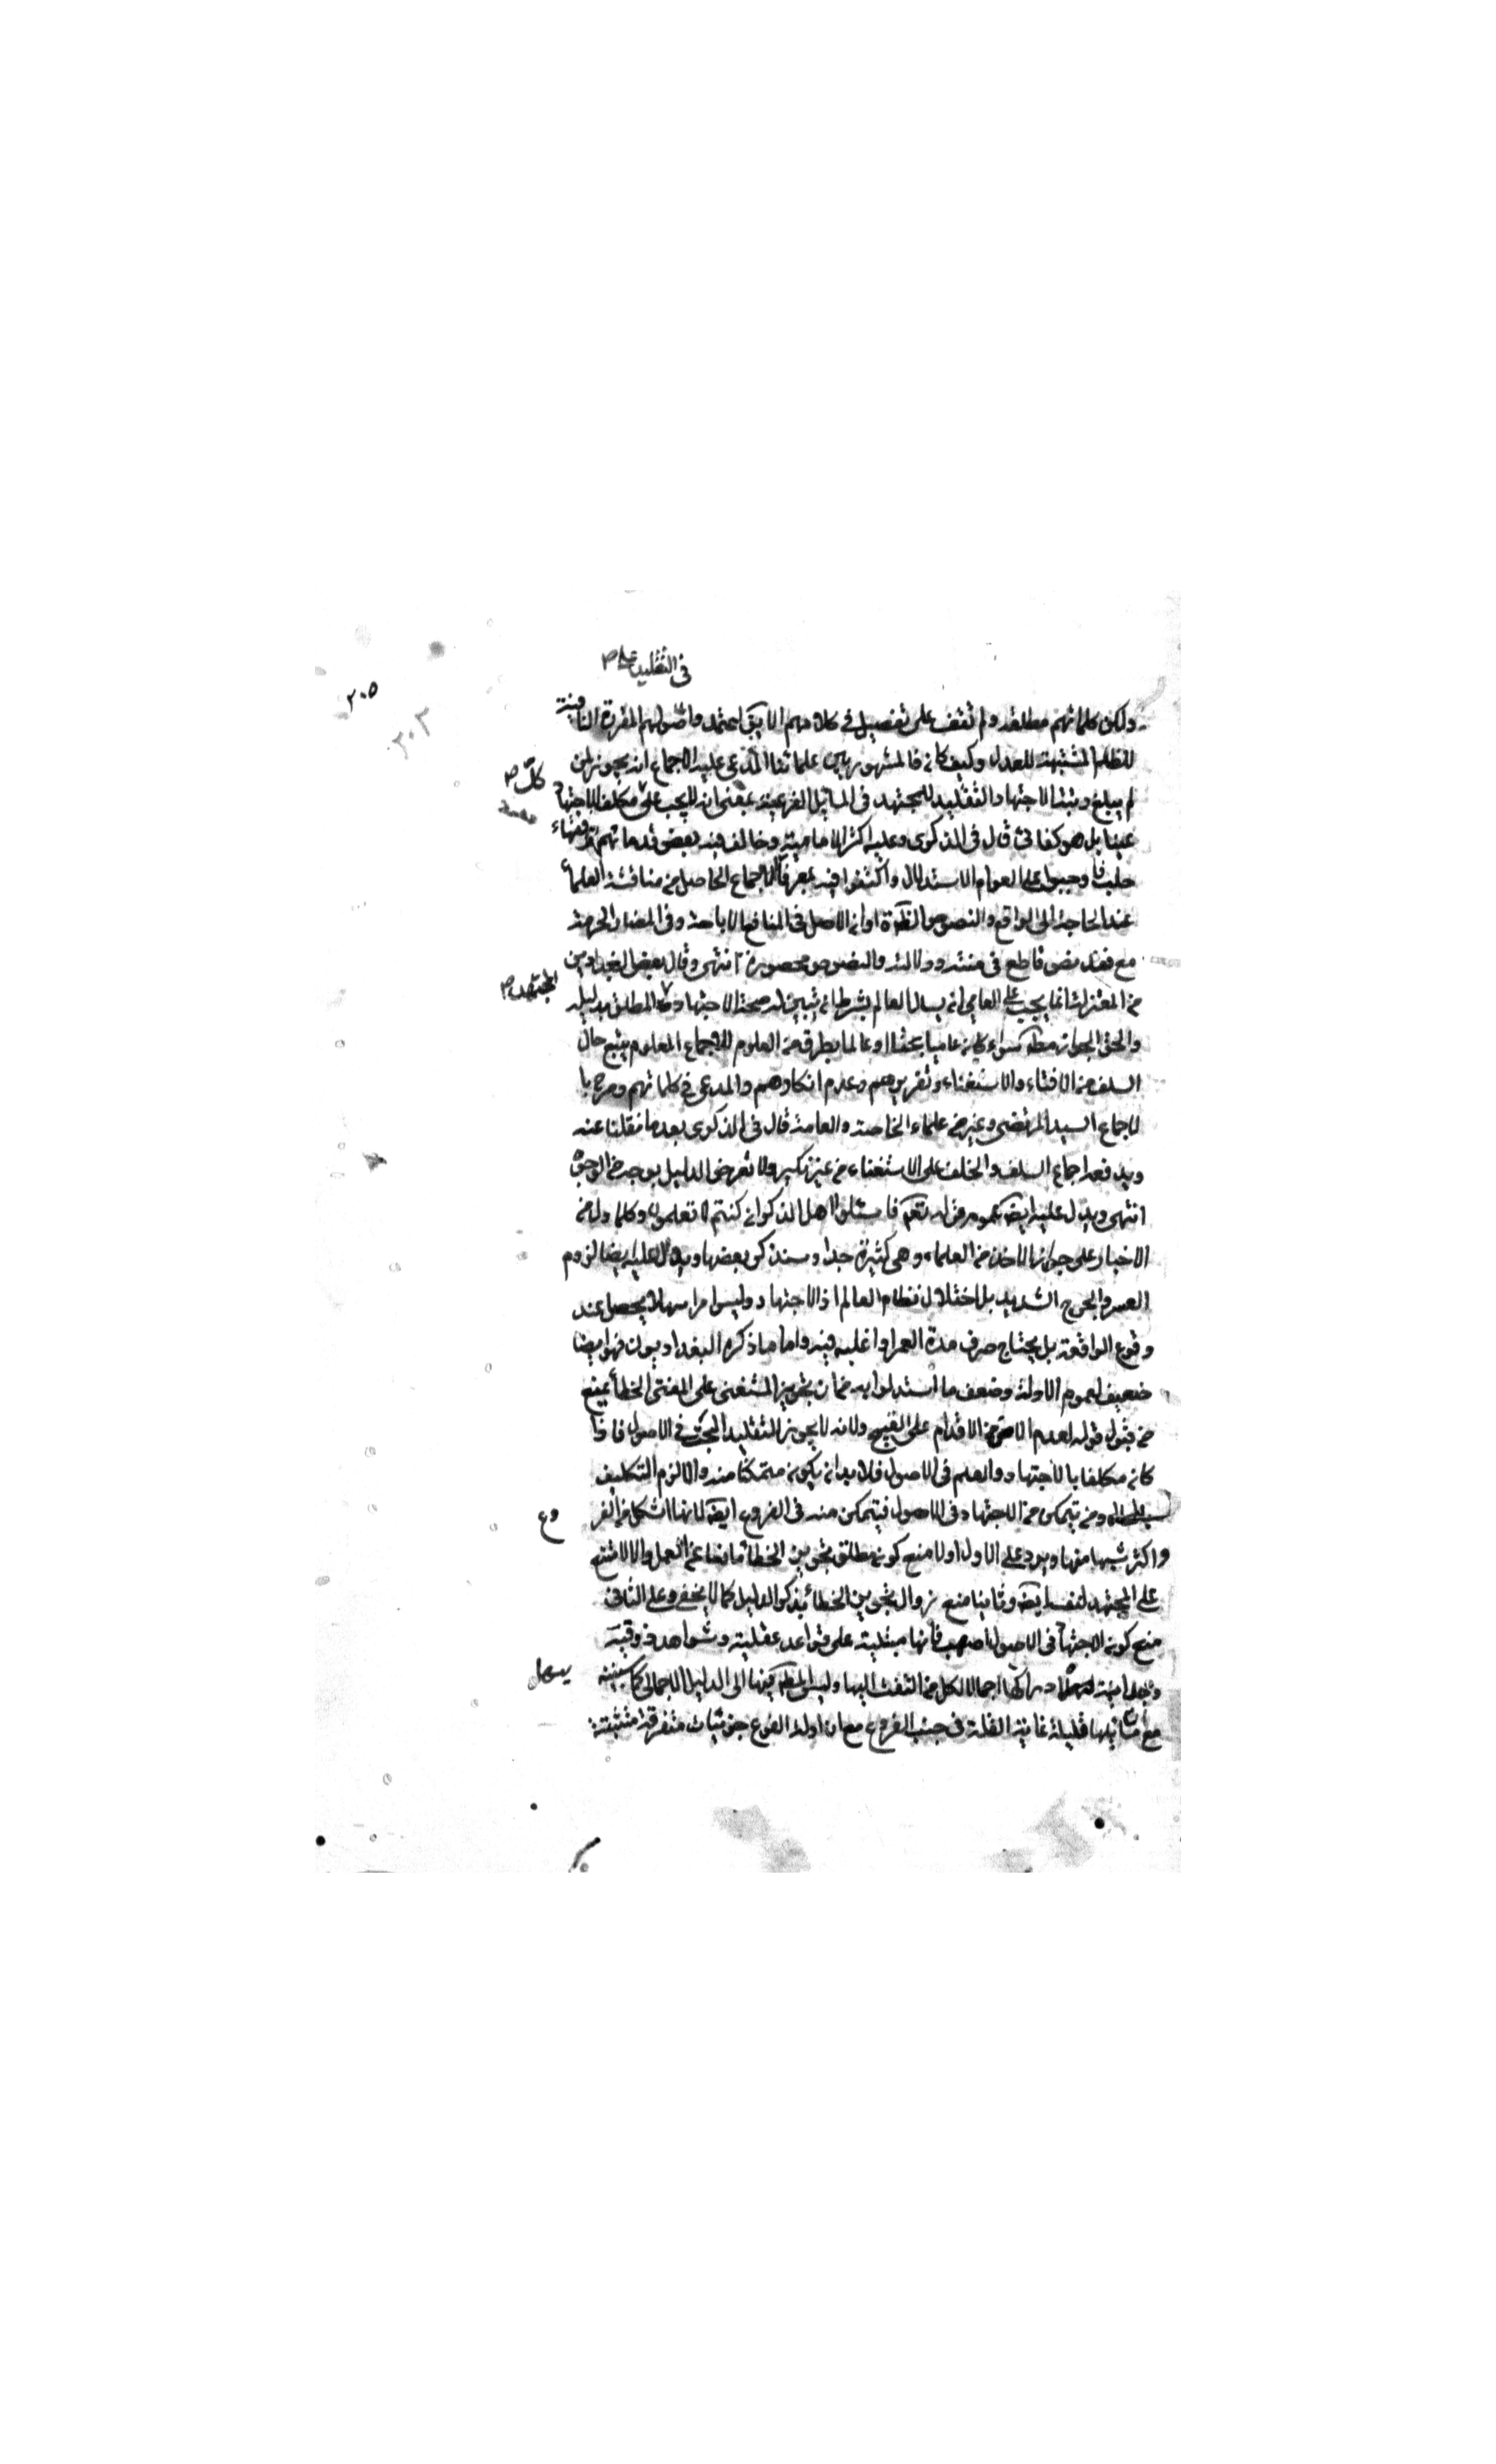 في التقليد
٢٠٥
٢٠٣
ولكن كلماتهم مطلقة ولم نقف على تفصيل في كلامهم الا يق اعتمدوا اصولهم المقررة النافية
للظلم المثبتة للعدل وكيف كان فالمشهور بين علمائنا المدعى عليه الاجماع انه يجوز لمن
لم يبلغ رتبة الاجتهاد التقليد للمجتهد في المسائل الفرعية بمعنى انه لا يجب على مكلف الاجتهاد
كل
عينا بل هو كفائي قال في الذكرى وعليه اكثر الامامية وخالف فيه بعض قدمائهم وفقهاء
حلب فاوجبوا على العوام الاستدلال واكتفوا فيه بمعرفة الاجماع الحاصل من مناقشة العلماء
عند الحاجة الى الوقائع والنصوص الظاهرة او ان الاصل في المنافع الاباحة وفي المضار الحرمة
مع فقد نص قاطع في متنه ودلالته والنصوص محصورة انتهى وقال بعض البغداديين
من المعتزلة انما يجب على العامي ان يسال العالم بشرط ان يتبين له صحة الاجتهاد المطلق بدليله
المجتهد
والحق الجواز مطلقا سواء كان عاميا بحتا او عالما بطرف من العلوم للاجماع المعلوم بتتبع حال
السلف من الافتاء والاستفتاء وتقريرهم وعدم انكارهم والمدعى في كلماتهم وصرح با
لاجماع السيد المرتضى وغيره من علماء الخاصة والعامة قال في الذكرى بعد ما نقلنا عنه
ويدفعه اجماع السلف والخلف على الاستفتاء من غير نكير ولا تعرض الدليل بوجه من الوجوه
انتهى ويدل عليه ايضا عموم قوله تعالى فاسئلوا اهل الذكر ان كنتم لا تعلمون وكلما دل من
الاخبار على جواز الاخذ من العلماء وهي كثيرة جدا وسنذكر بعضها ويدل عليه ايضا لزوم
العسر والحرج الشديد بل اختلال نظام العالم اذ الاجتهاد وليس امرا سهلا يحصل عند
وقوع الواقعة بل يحتاج صرف مدة العمر او اغلبه فيه واما ما ذكره البغداديون فهو ايضا
ضعيف لعموم الادلة وضعف ما استدلوا به من ان تجويز المستفتي على المفتي الخطأ يمنع
من قبول قوله لعدم الامن من الاقدام على القبيح ولانه لا يجوز التقليد البحت في الاصول فاذا
كان مكلفا بالاجتهاد والعلم في الاصول فلا بد ان يكون متمكنا منه والا لزم التكليف
ومن يتمكن من الاجتهاد في الاصول فيتمكن منه في الفروع ايضا لانها اشكل من الفر
وع
واكثر شبها منها ويرد على الاول اولا منع كون مطلق تجويز الخطأ مانعا عن العمل والا لامتنع
على المجتهد لنفسه ايضا وثانيا منع زوال تجويز الخطأ بذكر الدليل كما لا يخفى وعلى الثاني
منع كون الاجتهاد في الاصول اصعب فانها مبتنية على قواعد عقلية وشواهد ذوقية
وجدانية ادراكها اجمالا لكل من التفت اليها وليس المطلوب فيها الا الدليل الاجمالي كما سنبينه
يسهل
مع ان مسائلها قليلة غاية القلة في جنب الفروع مع ان ادلة الفروع جزئيات متفرقة متشتتة